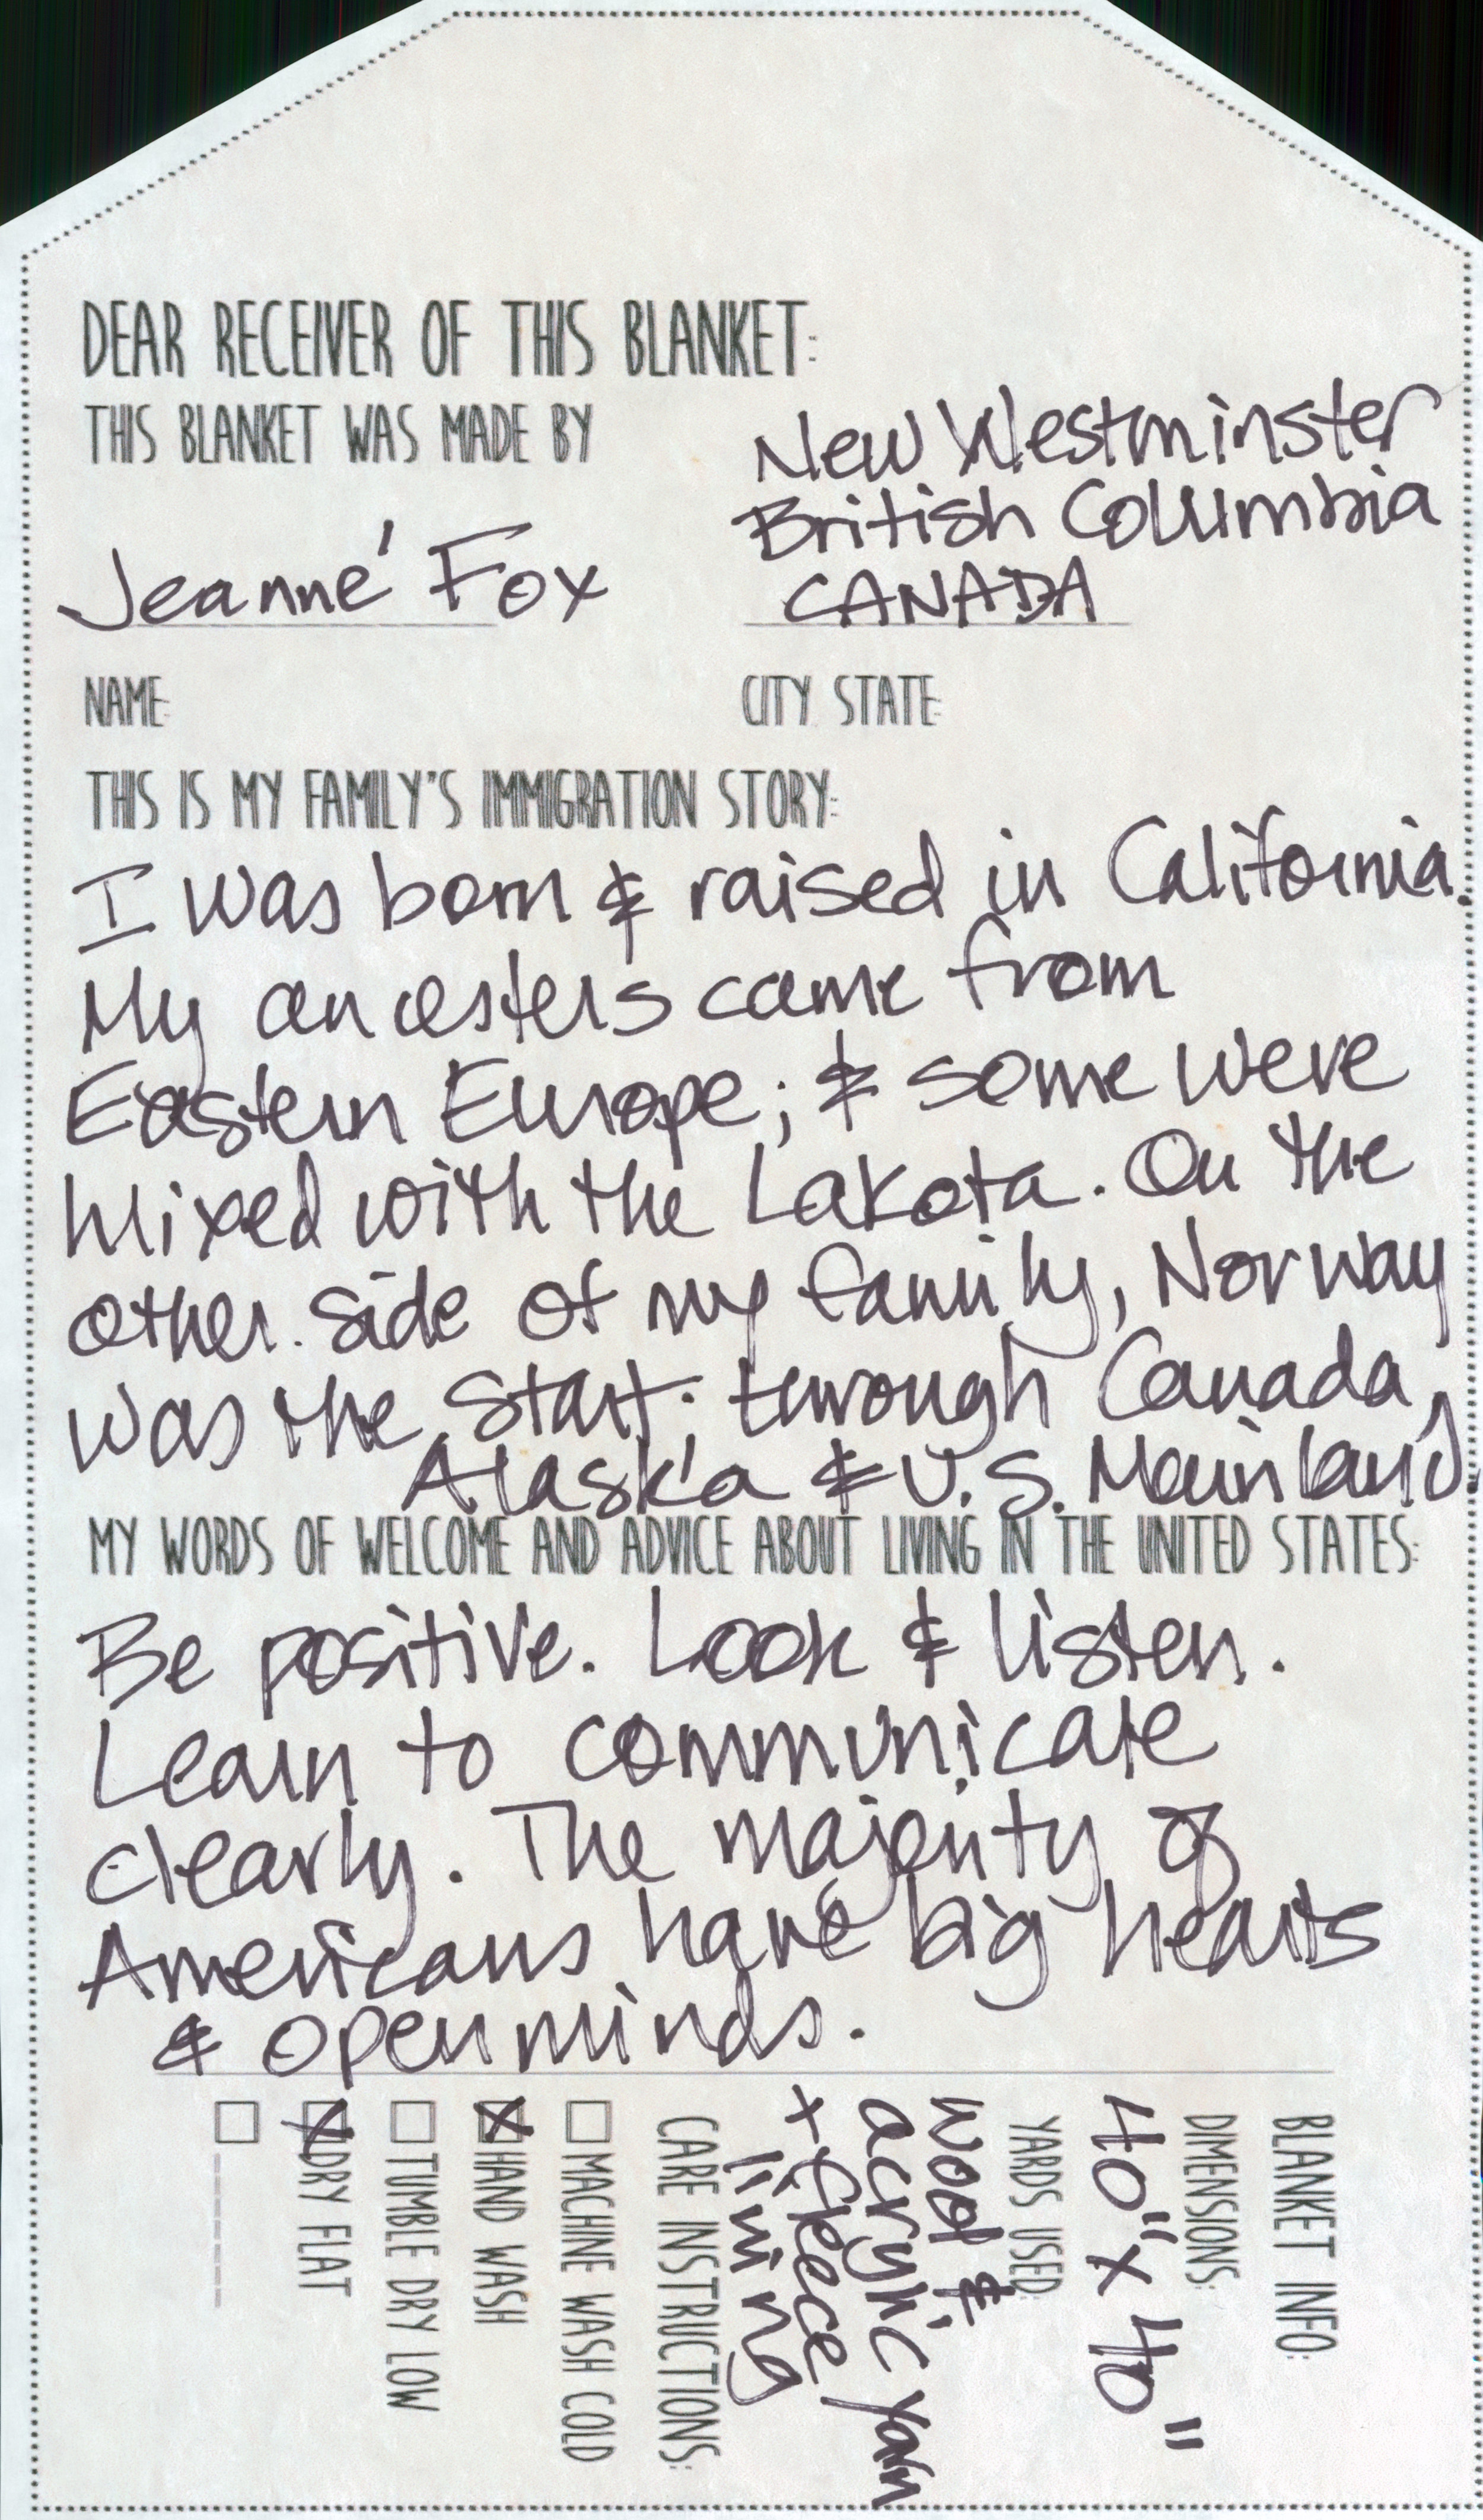 DEAR RECEIVER OF THIS BLANKET:
THIS BLANKET WAS MADE BY
Jeanné Fox
New Westminster
British Columbia
CANADA
NAME:
CITY STATE:
THIS IS MY FAMILY'S IMMIGRATION STORY:
I was born & raised in California.
My ancesters came from
Eastern Europe; & some were
mixed with the Lakota. On the
other side of my family, Norway
was the start: through Canada,
Alaska & U.S. Mainland.
MY WORDS OF WELCOME AND ADVICE ABOUT LIVING IN THE UNITED STATES:
Be positive. Look & listen.
Learn to communicate
clearly. The majority of
Americans have big hearts
& open minds.
BLANKET INFO:
DIMENSIONS:
40" x 40"
YARDS USED:
wool &
acrylic yarn
+ fleece
lining
CARE INSTRUCTIONS:
MACHINE WASH COLD
X HAND WASH
TUMBLE DRY LOW
X DRY FLAT